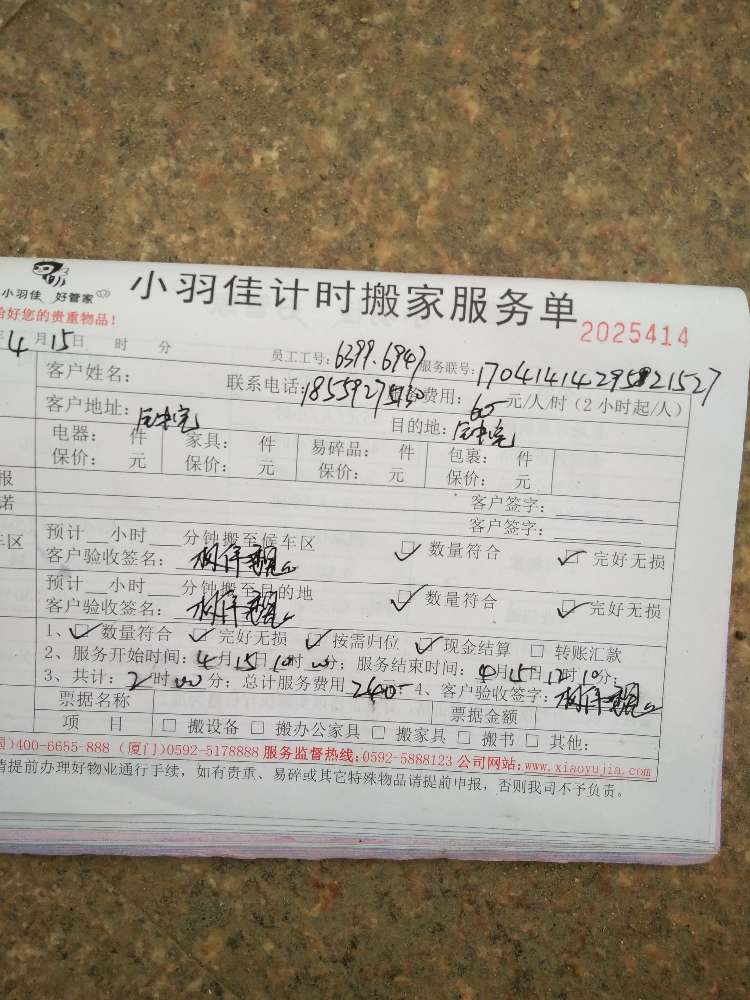 小羽佳 好管家
小羽佳计时搬家服务单
2025414
给好您的贵重物品！
4月15日 时 分 员工工号：6399.6947 服务联号：170414142958821527
客户姓名： 联系电话： 费用：60元/人/时（2小时起/人）
客户地址： 目的地：
电器： 件 家具： 件 易碎品： 件 包裹： 件
保价： 元 保价： 元 保价： 元 保价： 元
报 客户签字：
诺 客户签字：
车区 预计 小时 分钟搬至候车区
客户验收签名： ☑ 数量符合 ☑ 完好无损
预计 小时 分钟搬至目的地
客户验收签名： ☑ 数量符合 ☑ 完好无损
1、☑ 数量符合 ☑ 完好无损 ☑ 按需归位 ☑ 现金结算 □ 转账汇款
2、服务开始时间：4月15日10时00分；服务结束时间：4月15日12时10分；
3、共计：2时00分；总计服务费用240元 4、客户验收签字：
票据名称 票据金额
项 目 □ 搬设备 □ 搬办公家具 □ 搬家具 □ 搬书 □ 其他：
国）400-6655-888（厦门）0592-5178888 服务监督热线：0592-5888123 公司网站：www.xiaoyujia.com
请提前办理好物业通行手续，如有贵重、易碎或其它特殊物品请提前申报，否则我司不予负责。